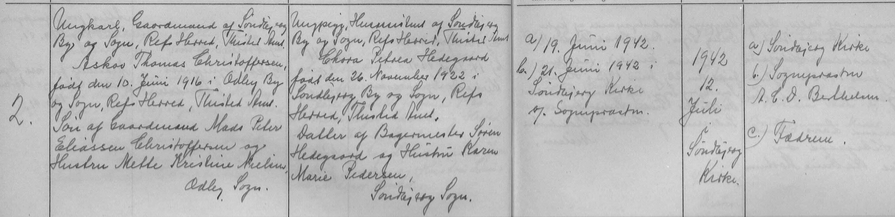 2.
Ungkarl, Gaardmand af Søndbjerg
By og Sogn, Refs Herred, Thisted Amt.
Askov Thomas Christoffersen,
født den 10. Juni 1916 i Odby By
og Sogn, Refs Herred, Thisted Amt.
Søn af Gaardmand Mads Peter
Eliassen Christoffersen og
Hustru Mette Kristine
Odby Sogn.
Ungpige, Husassistent af Søndbjerg
By og Sogn, Refs Herred, Thisted Amt
Petrea Hedegaard
født den 26. November 1922 i
Søndbjerg By og Sogn, Refs
Herred, Thisted Amt.
Datter af Bagermester Søren
Hedegaard og Hustru Karen
Marie Pedersen,
Søndbjerg Sogn.
a) 19. Juni 1942.
b.) 21. Juni 1942 i
Søndbjerg Kirke
v/ Sognepræsten.
1942
12.
Juli
Søndbjerg
Kirke.
a) Søndbjerg Kirke
b.) Sognepræsten
A. C. D.
c.) Fædrene.